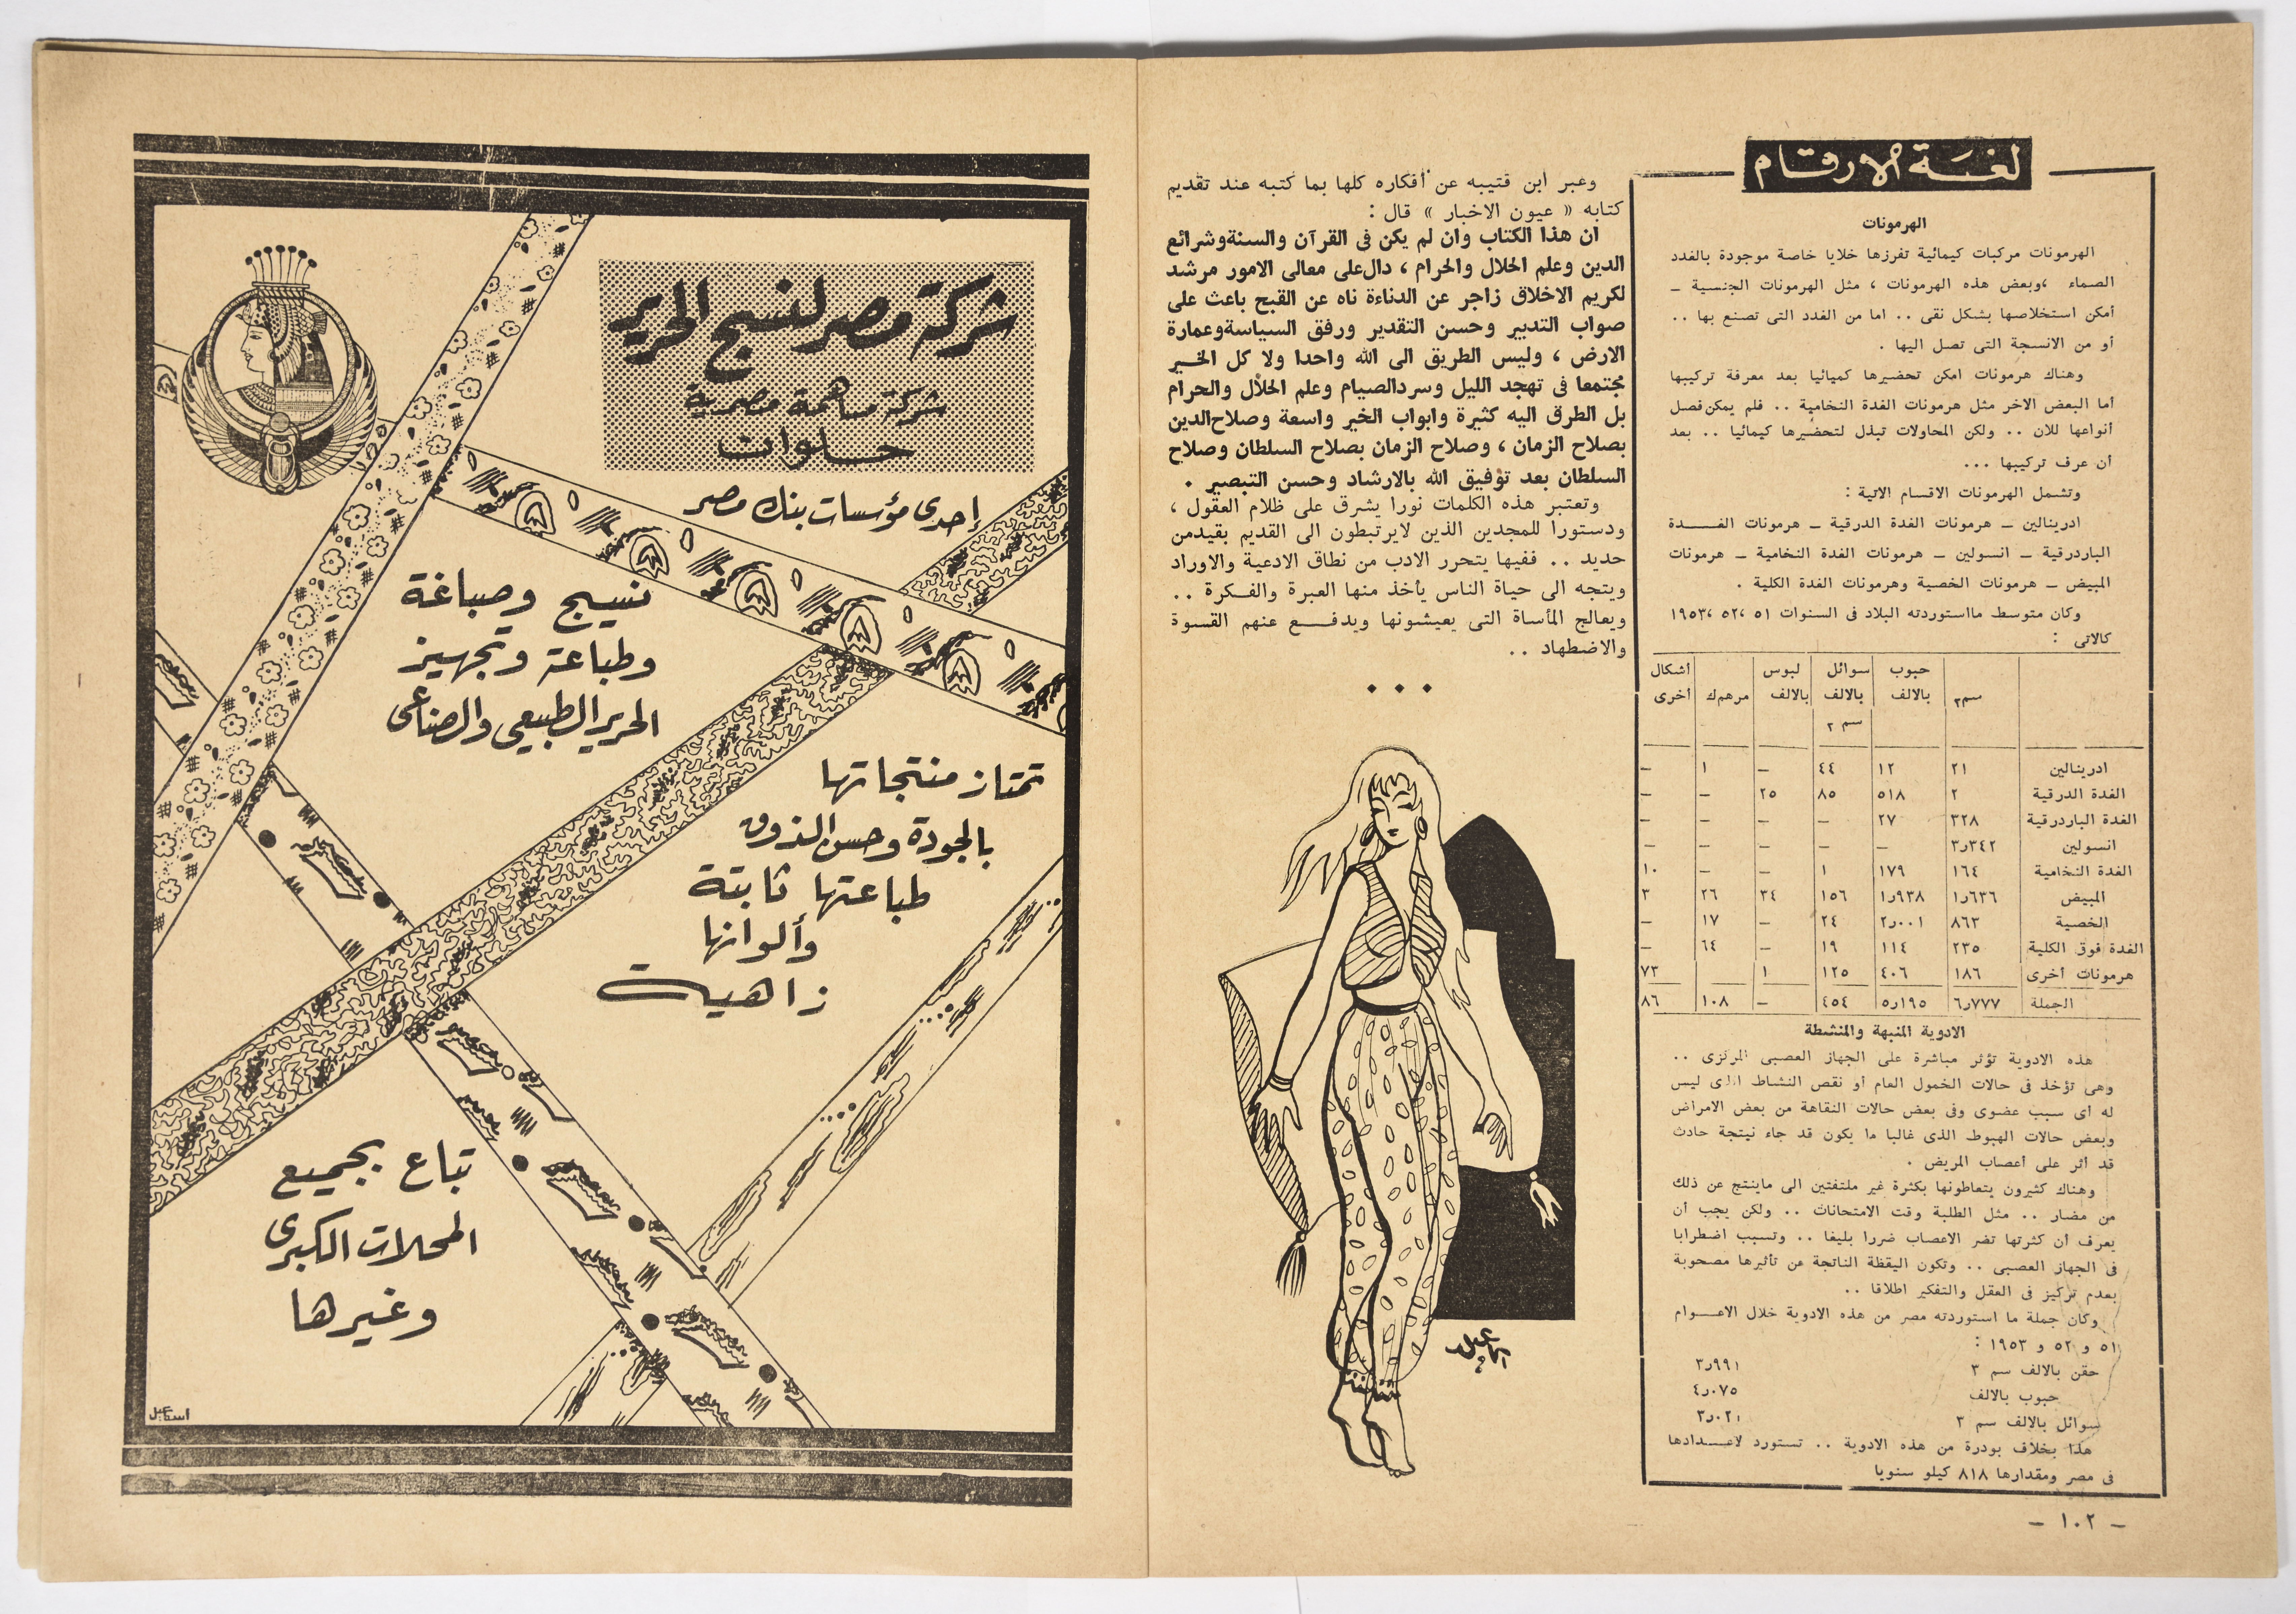 لغة الأرقام
الهرمونات
الهرمونات مركبات كيمائية تفرزها خلايا خاصة موجودة بالغدد
الصماء ،وبعض هذه الهرمونات ، مثل الهرمونات الجنسية ــ
أمكن استخلاصها بشكل نقى .. اما من الغدد التى تصنع بها ..
أو من الانسجة التى تصل اليها .
وهناك هرمونات امكن تحضيرها كميائيا بعد معرفة تركيبها
أما البعض الاخر مثل هرمونات الغدة النخامية .. فلم يمكن فصل
أنواعها للان .. ولكن المحاولات تبذل لتحضيرها كيمائيا .. بعد
أن عرف تركيبها ...
وتشمل الهرمونات الاقسام الاتية :
ادرينالين ــ هرمونات الغدة الدرقية ــ هرمونات الغـــدة
الباردرقية ــ انسولين ــ هرمونات الغدة النخامية ــ هرمونات
المبيض ــ هرمونات الخصية وهرمونات الغدة الكلية .
وكان متوسط مااستوردته البلاد فى السنوات ٥١ ،٥٢ ،١٩٥٣
كالاتى :
حبوب سوائل لبوس أشكال
سم٣ بالالف بالالف بالالف مرهم ك أخرى
سم ٣
ادرينالين ٢١ ١٢ ٤٤ – ١ –
الغدة الدرقية ٢ ٥١٨ ٨٥ ٢٥ – –
الغدة الباردرقية ٣٢٨ ٢٧ – – – –
انسولين ٣٫٣٤٢ – – – – –
الغدة النخامية ١٦٤ ١٧٩ ١ – – ١٠
المبيض ١٫٦٣٦ ١٫٩٣٨ ١٥٦ ٣٤ ٢٦ ٣
الخصية ٨٦٣ ٢٫٠٠١ ٢٤ – ١٧ –
الغدة فوق الكلية ٢٣٥ ١١٤ ١٩ – ٦٤ –
هرمونات أخرى ١٨٦ ٤٠٦ ١٢٥ ١ ٧٣
الجملة ٦٫٧٧٧ ٥٫١٩٥ ٤٥٤ – ١٠٨ ٨٦
الادوية المنبهة والمنشطة
هذه الادوية تؤثر مباشرة على الجهاز العصبى المركزى ..
وهى تؤخذ فى حالات الخمول العام أو نقص النشاط الذى ليس
له أى سبب عضوى وفى بعض حالات النقاهة من بعض الامراض
وبعض حالات الهبوط الذى غالبا ما يكون قد جاء نيتجة حادث
قد أثر على أعصاب المريض .
وهناك كثيرون يتعاطونها بكثرة غير ملتفتين الى ماينتج عن ذلك
من مضار .. مثل الطلبة وقت الامتحانات .. ولكن يجب أن
يعرف أن كثرتها تضر الاعصاب ضررا بليغا .. وتسبب اضطرابا
فى الجهاز العصبى .. وتكون اليقظة الناتجة عن تأثيرها مصحوبة
بعدم تركيز فى العقل والتفكير اطلاقا ..
وكان جملة ما استوردته مصر من هذه الادوية خلال الاعــوام
٥١ و ٥٢ و ١٩٥٣ :
حقن بالالف سم ٣ ٣٫٩٩١
حبوب بالالف ٤٫٠٧٥
سوائل بالالف سم ٣ ٣٫٠٢١
هذا بخلاف بودرة من هذه الادوية .. تستورد لاعــدادها
فى مصر ومقدارها ٨١٨ كيلو سنويا
– ١٠٢ –
وعبر ابن قتيبه عن أفكاره كلها بما كتبه عند تقديم
كتابه « عيون الاخبار » قال :
ان هذا الكتاب وان لم يكن فى القرآن والسنةوشرائع
الدين وعلم الحلال والحرام ، دال على معالى الامور مرشد
لكريم الاخلاق زاجر عن الدناءة ناه عن القبح باعث على
صواب التدبير وحسن التقدير ورفق السياسةوعمارة
الارض ، وليس الطريق الى الله واحدا ولا كل الخير
مجتمعا فى تهجد الليل وسردالصيام وعلم الحلال والحرام
بل الطرق اليه كثيرة وابواب الخير واسعة وصلاح الدين
بصلاح الزمان ، وصلاح الزمان بصلاح السلطان وصلاح
السلطان بعد توفيق الله بالارشاد وحسن التبصير .
وتعتبر هذه الكلمات نورا يشرق على ظلام العقول ،
ودستورا للمجدين الذين لايرتبطون الى القديم بقيدمن
حديد .. ففيها يتحرر الادب من نطاق الادعية والاوراد
ويتجه الى حياة الناس يأخذ منها العبرة والفـكرة ..
ويعالج المأساة التى يعيشونها ويدفــع عنهم القسوة
والاضطهاد ..
شركة مصر لنسج الحرير
شركة مساهمة مصرية
حلوان
إحدى مؤسسات بنك مصر
نسيج وصباغة
وطباعة وتجهيز
الحرير الطبيعى والصناعى
تمتاز منتجاتها
بالجودة وحسن الذوق
طباعتها ثابتة
وألوانها
زاهية
تباع بجميع
المحلات الكبرى
وغيرها